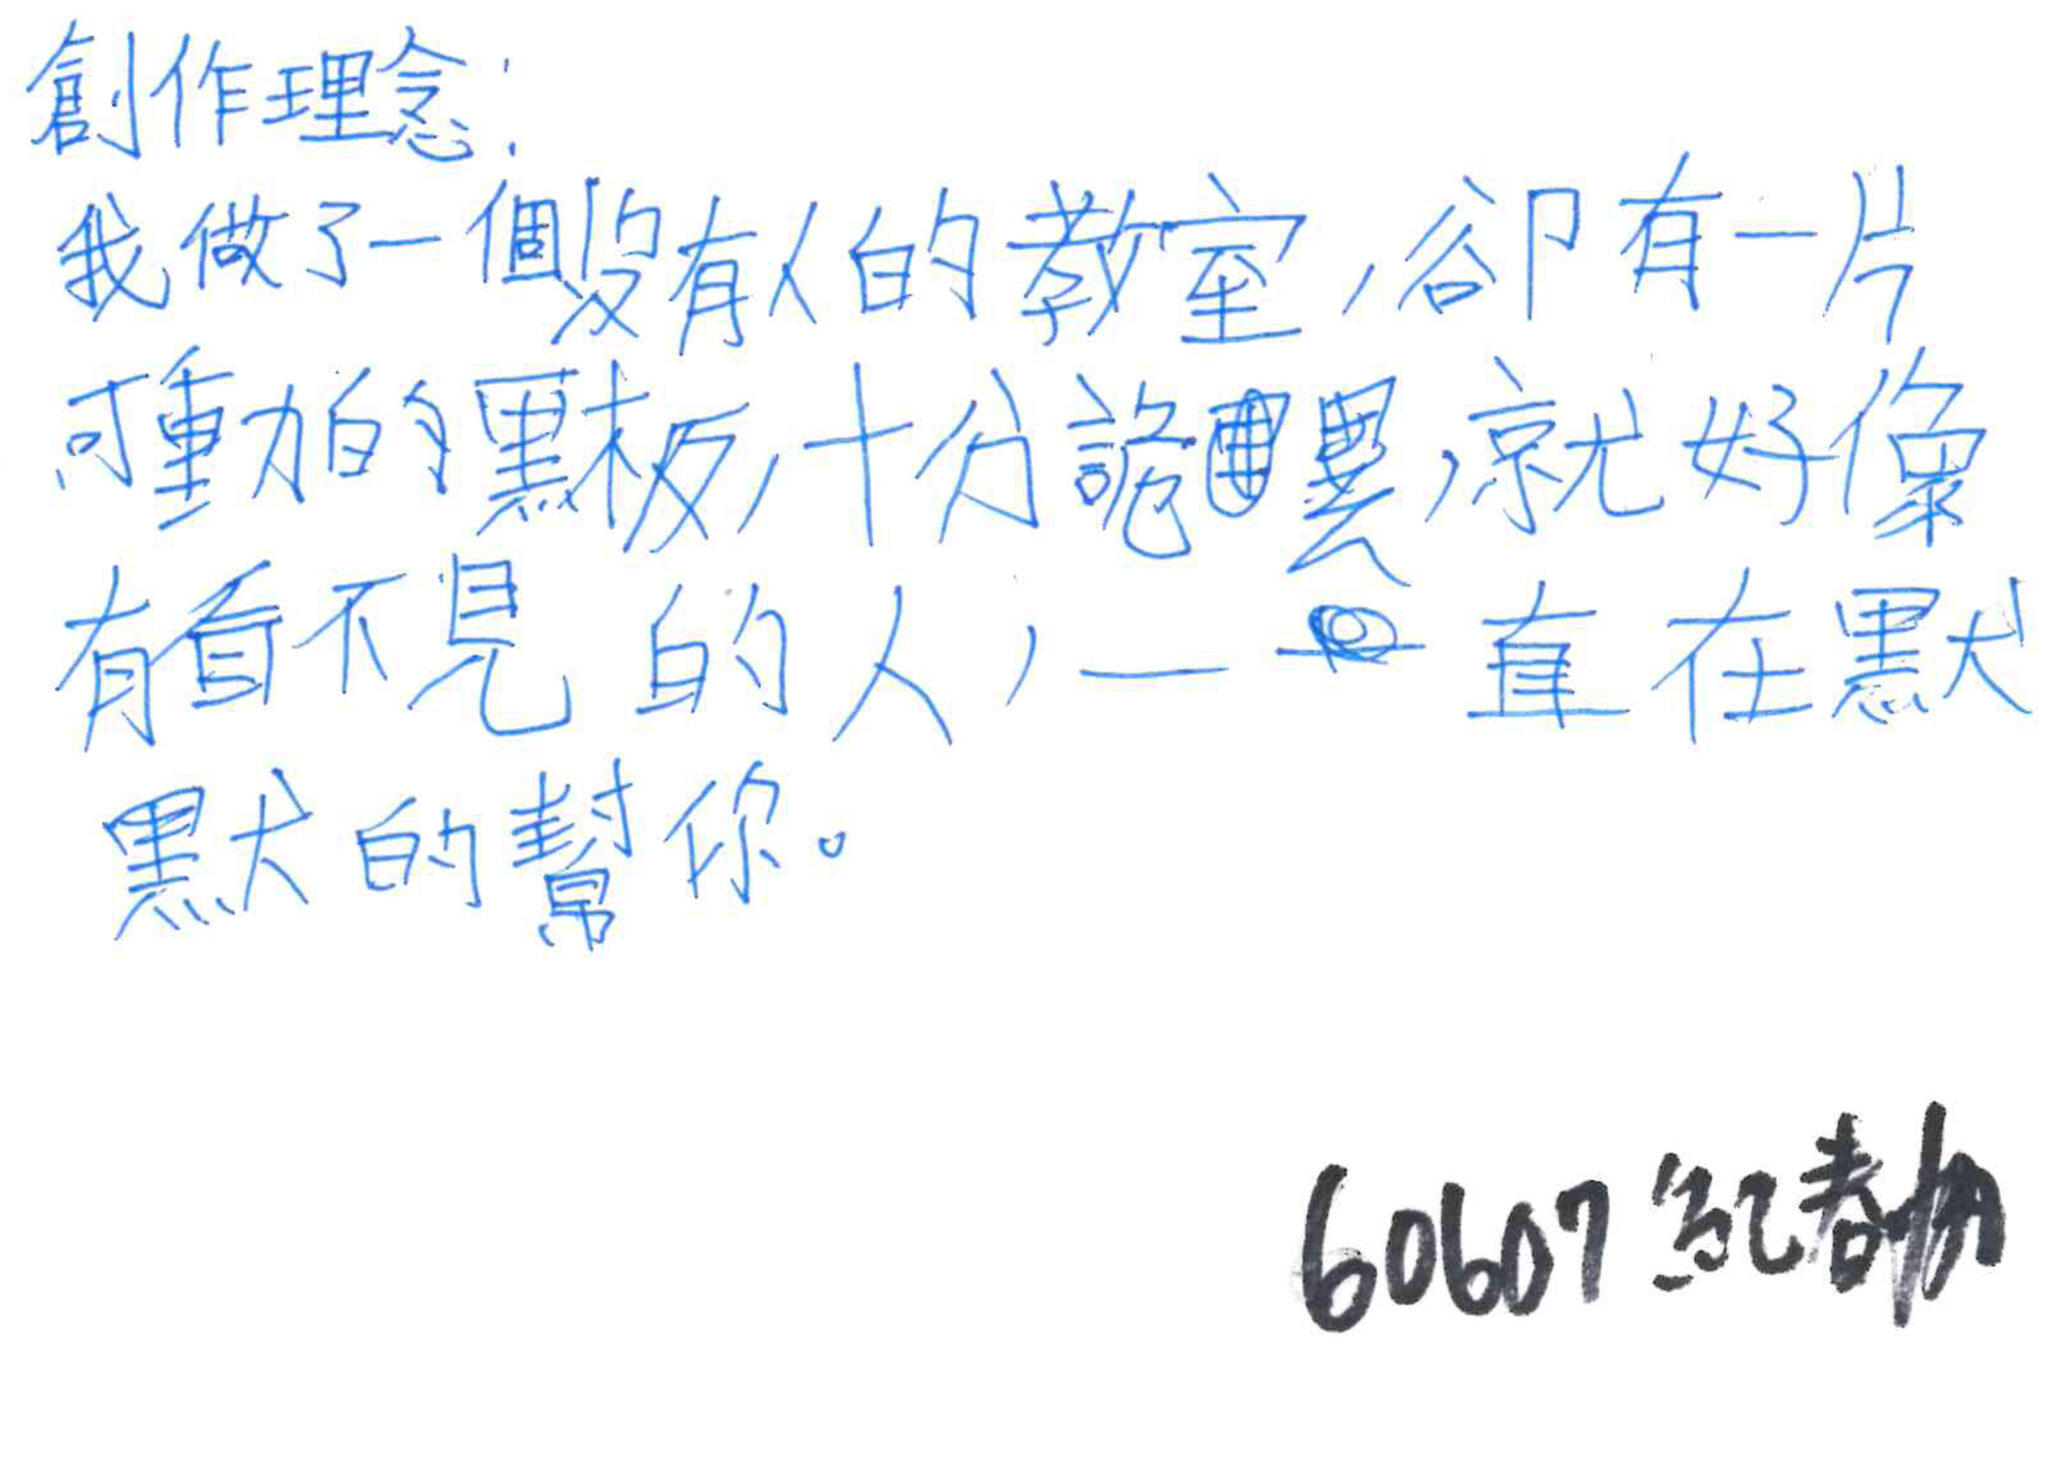 創作理念:
我做了一個沒有人的教室,卻有一片
可動的黑板,十分詭異,就好像
有看不見的人,一直在默
默的幫你。
60607 紀春